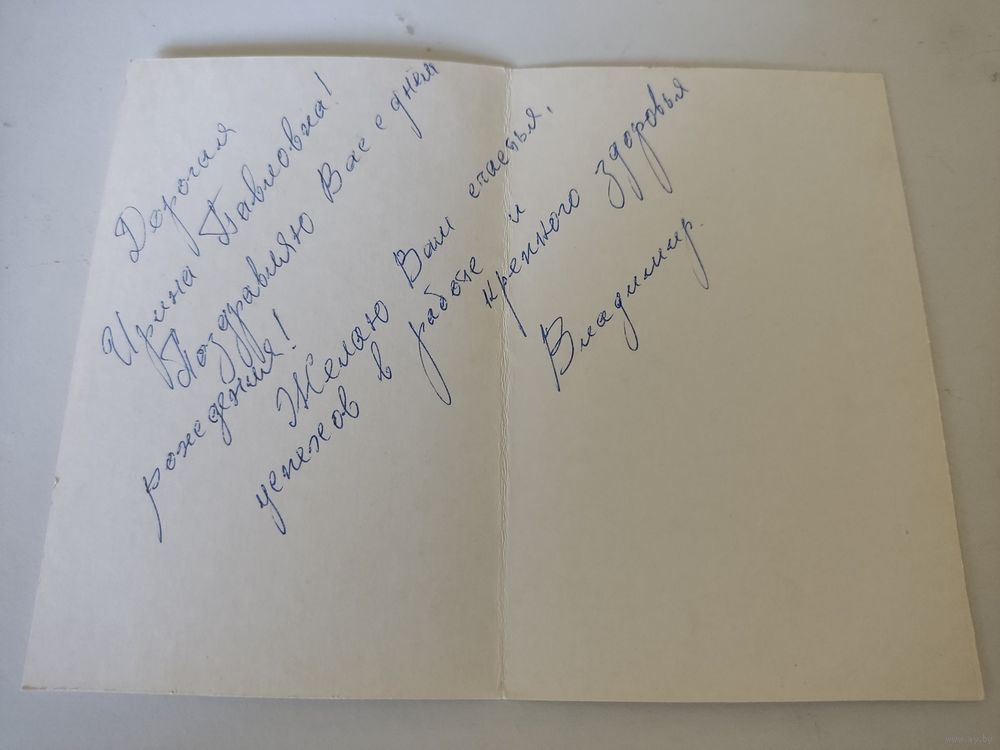 Дорогая
Ирина Павловна!
Поздравляю Вас с днём
рождения!
Желаю Вам счастья,
успехов в работе и
крепкого здоровья
Владимир.
www.ay.by